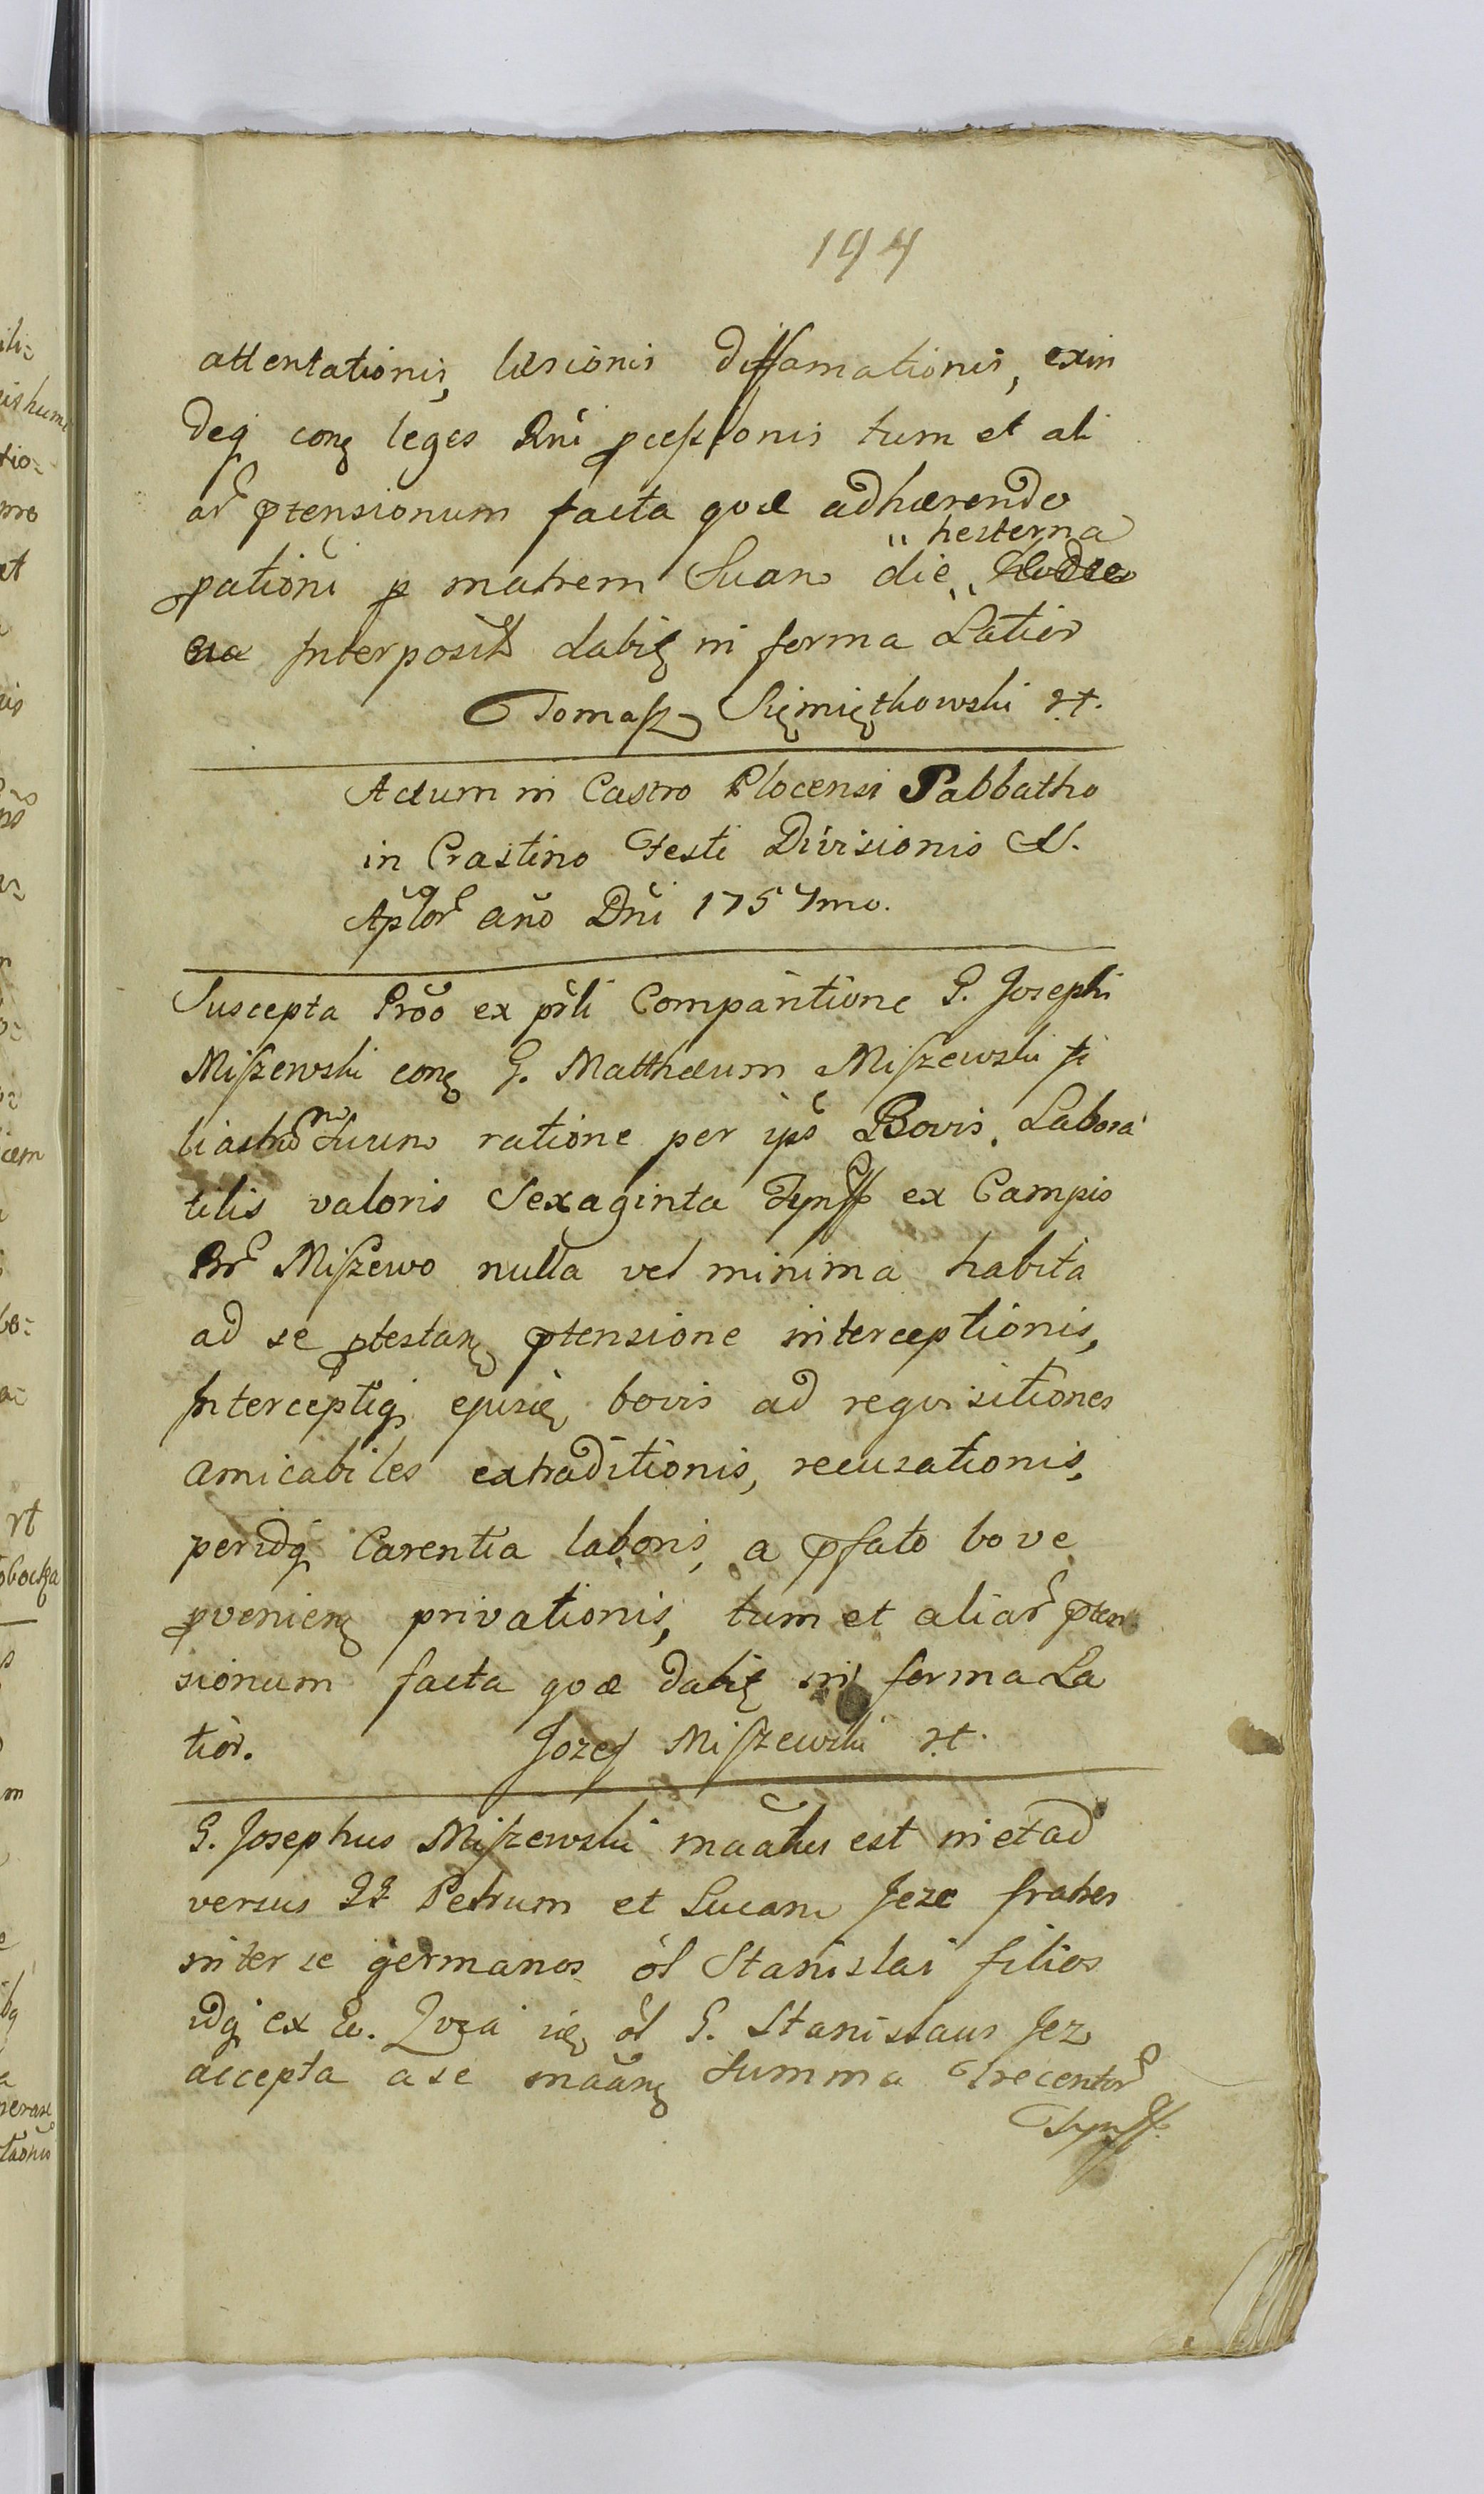 194
attentationis, læsionis diffamationis, exin
deq con͠ leges Dni pcessionis tum et ali
ar̃ ptensionum facta qoæ adhærendo
hesterna
pationi p matrem Suam die
Interposit dabit͠ in forma Latior
Tomasz Siemiętkowski rt.
Actum in Castro Plocensi Sabbatho
in Crastino Festi Divisionis SS.
Aplor̃ año Dñi 1757mo.
Suscepta Prõo ex pr̃li Comparitione G. Josephi
Miszewski con͠ G. Matthæum Miszewski fi
liastrum Suum ratione per ips Bovis Labora
tilis valoris Sexaginta Tynff ex Campis
Br̃ Miszewo nulla vel minima habita
ad se ptestan͠ ptensione interceptionis,
Interceptiq ejusd͠ bovis ad requisitiones
amicabiles extraditionis, recusationis,
peridq Carentia laboris, a pfato bove
pvenien͠ privationis, tum et aliar̃ pten
sionum facta qoæ dabit͠ in forma La
tior. Jozef Miszewski rt.
G. Josephus Miszewski maatus est in et ad
versus GG Petrum et Lucam Jeze fratres
inter se germanos ol Stanislai filios
idq ex eo. Quia id͠ ol G. Stanislaus Jez
accepta a se maan͠ Summa Trecentor̃
Tynff.